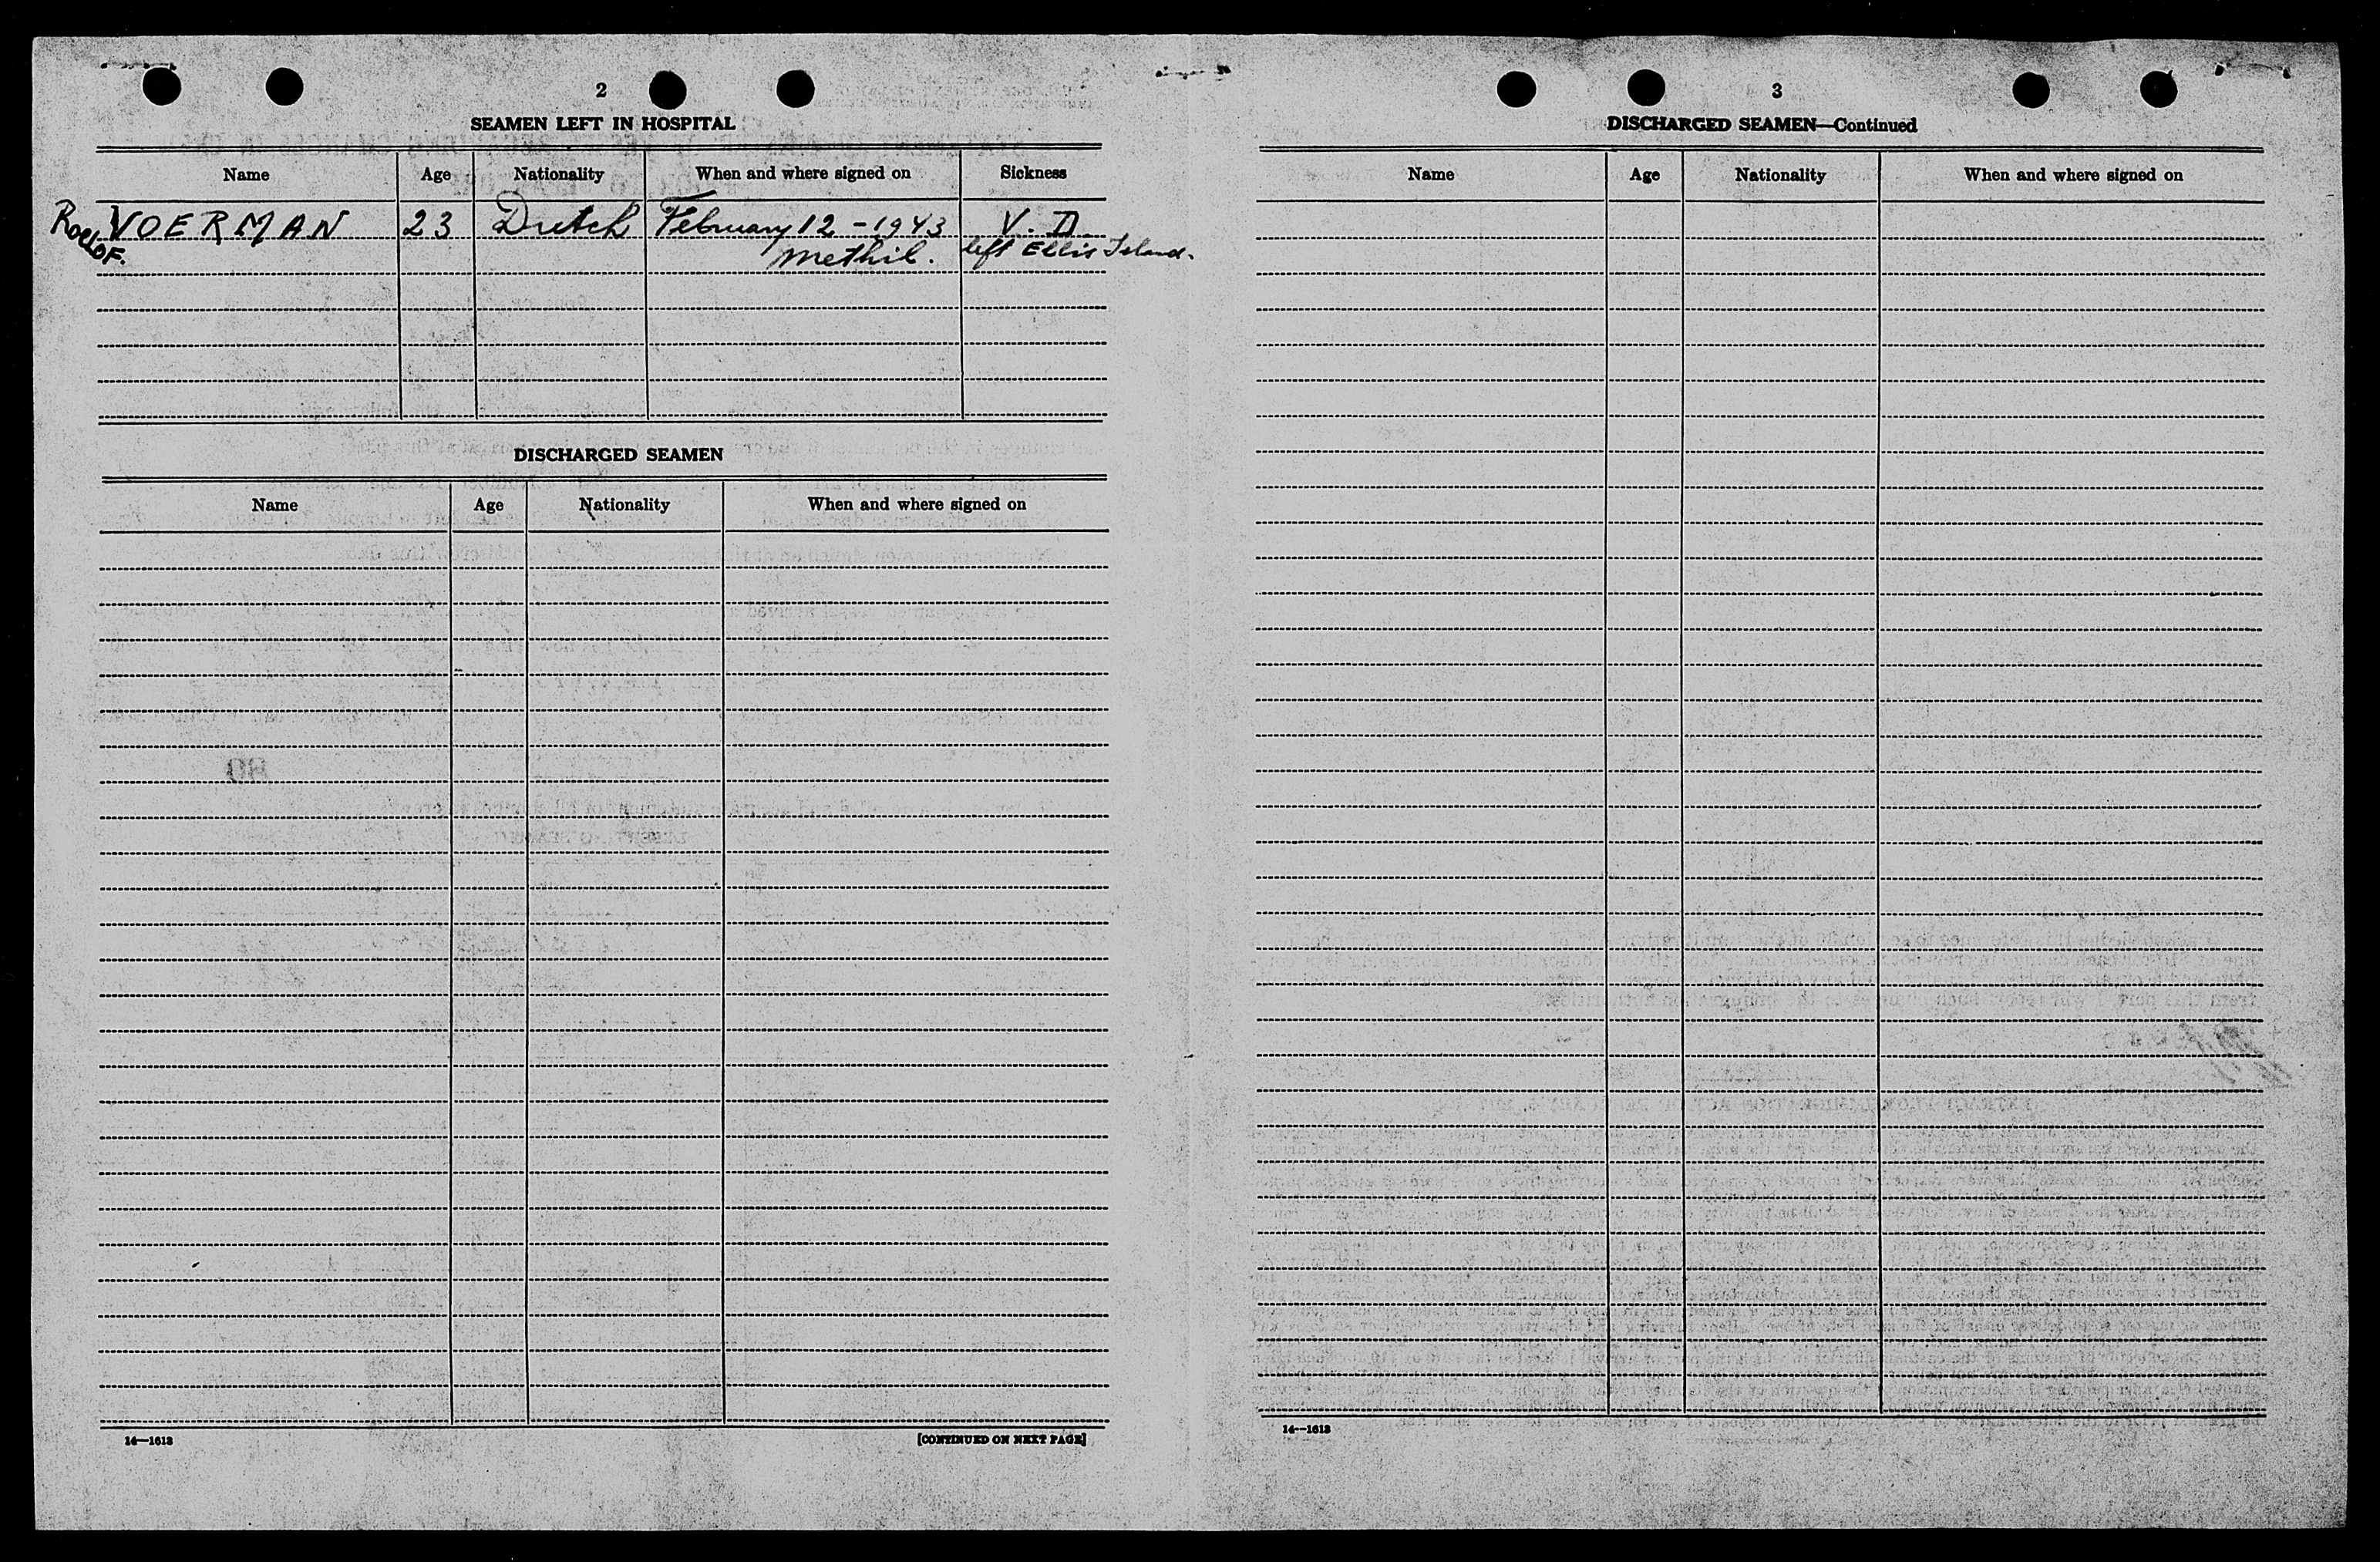 2
SEAMEN LEFT IN HOSPITAL
Name Age Nationality When and where signed on Sickness
Roelof. VOERMAN 23 Dutch February 12 - 1943 V. D.
Methil. left Ellis Island.
DISCHARGED SEAMEN
Name Age Nationality When and where signed on
14—1613 [CONTINUED ON NEXT PAGE]
3
DISCHARGED SEAMEN—Continued
Name Age Nationality When and where signed on
14—1613